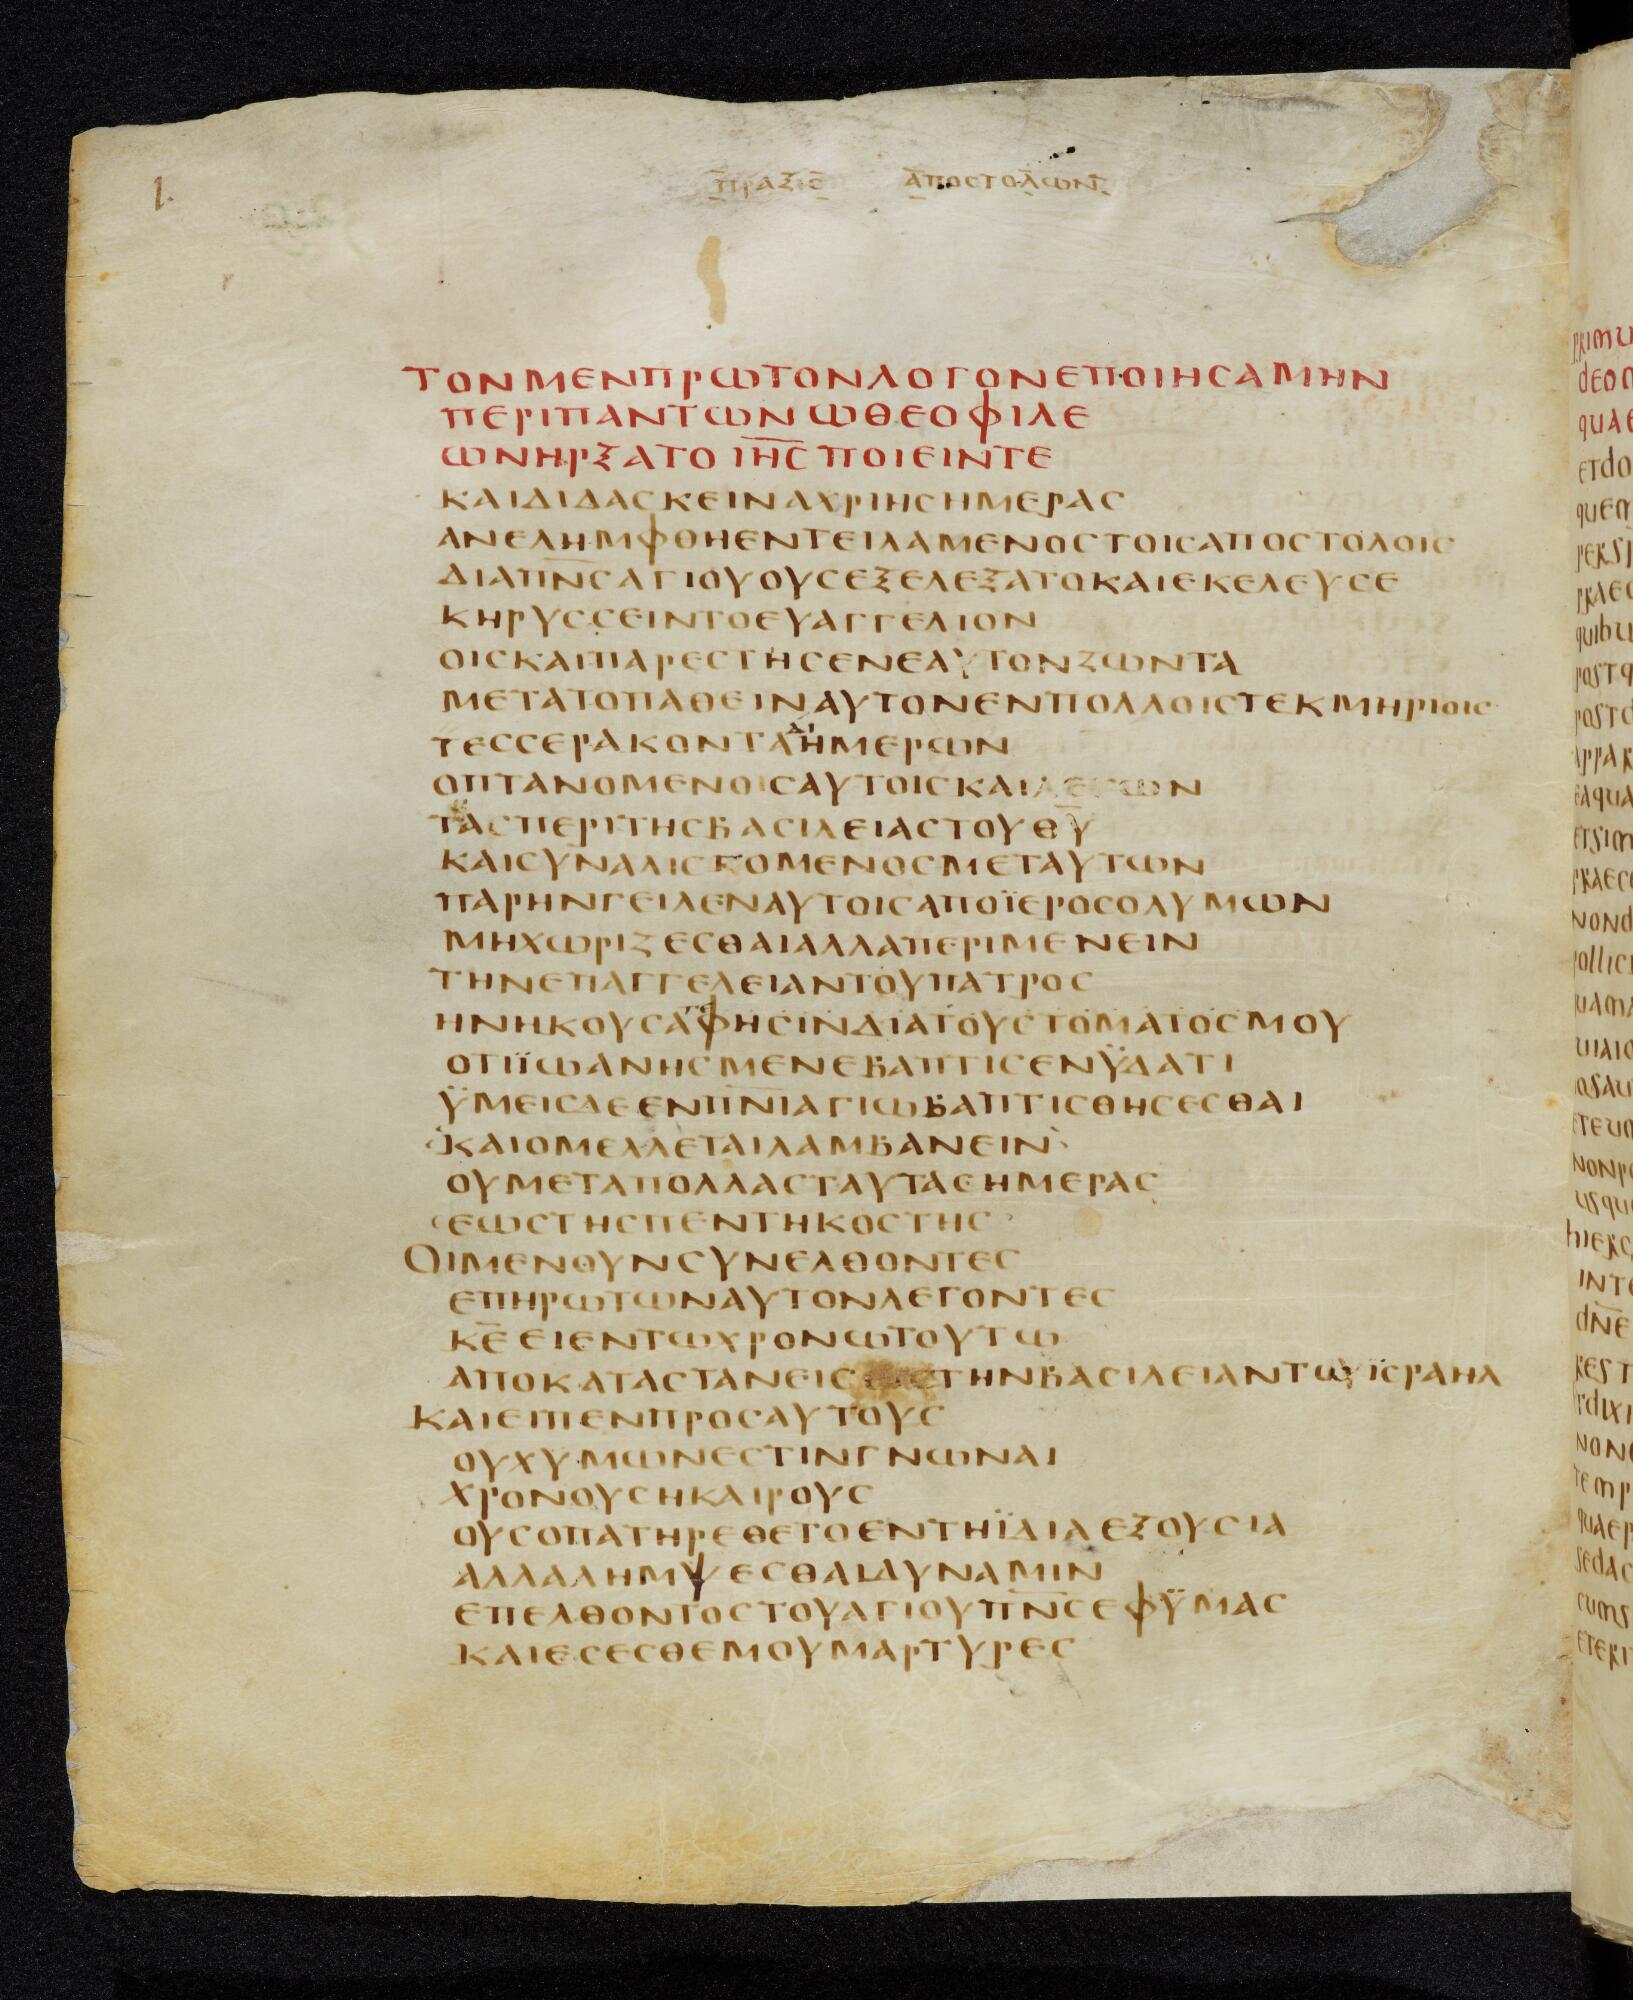 1.
ΠΡΑΞΙϹ ΑΠΟϹΤΟΛΩΝ
ΤΟΝΜΕΝΠΡΩΤΟΝΛΟΓΟΝΕΠΟΙΗϹΑΜΗΝ
ΠΕΡΙΠΑΝΤΩΝΩΘΕΟΦΙΛΕ
ΩΝΗΡΞΑΤΟΙΗ̅Ϲ̅ΠΟΙΕΙΝΤΕ
ΚΑΙΔΙΔΑϹΚΕΙΝΑΧΡΙΗϹΗΜΕΡΑϹ
ΑΝΕΛΗΜΦΘΗΕΝΤΕΙΛΑΜΕΝΟϹΤΟΙϹΑΠΟϹΤΟΛΟΙϹ
ΔΙΑΠΝ̅Ϲ̅ΑΓΙΟΥΟΥϹΕΞΕΛΕΞΑΤΟΚΑΙΕΚΕΛΕΥϹΕ
ΚΗΡΥϹϹΕΙΝΤΟΕΥΑΓΓΕΛΙΟΝ
ΟΙϹΚΑΙΠΑΡΕϹΤΗϹΕΝΕΑΥΤΟΝΖΩΝΤΑ
ΜΕΤΑΤΟΠΑΘΕΙΝΑΥΤΟΝΕΝΠΟΛΛΟΙϹΤΕΚΜΗΡΙΟΙϹ
ΤΕϹϹΕΡΑΚΟΝΤΑΗΜΕΡΩΝ
ΟΠΤΑΝΟΜΕΝΟΙϹΑΥΤΟΙϹΚΑΙΛΕΓΩΝ
ΤΑϹΠΕΡΙΤΗϹΒΑϹΙΛΕΙΑϹΤΟΥΘ̅Υ̅
ΚΑΙϹΥΝΑΛΙϹΚΟΜΕΝΟϹΜΕΤΑΥΤΩΝ
ΠΑΡΗΝΓΕΙΛΕΝΑΥΤΟΙϹΑΠΟΪΕΡΟϹΟΛΥΜΩΝ
ΜΗΧΩΡΙΖΕϹΘΑΙΑΛΛΑΠΕΡΙΜΕΝΕΙΝ
ΤΗΝΕΠΑΓΓΕΛΕΙΑΝΤΟΥΠΑΤΡΟϹ
ΗΝΗΚΟΥϹΑΦΗϹΙΝΔΙΑΤΟΥϹΤΟΜΑΤΟϹΜΟΥ
ΟΤΙΪΩΑΝΗϹΜΕΝΕΒΑΠΤΙϹΕΝΫΔΑΤΙ
ΫΜΕΙϹΔΕΕΝΠΝ̅Ι̅ΑΓΙΩΒΑΠΤΙϹΘΗϹΕϹΘΑΙ
ΚΑΙΟΜΕΛΛΕΤΑΙΛΑΜΒΑΝΕΙΝ
ΟΥΜΕΤΑΠΟΛΛΑϹΤΑΥΤΑϹΗΜΕΡΑϹ
ΕΩϹΤΗϹΠΕΝΤΗΚΟϹΤΗϹ
ΟΙΜΕΝΟΥΝϹΥΝΕΛΘΟΝΤΕϹ
ΕΠΗΡΩΤΩΝΑΥΤΟΝΛΕΓΟΝΤΕϹ
Κ̅Ε̅ΕΙΕΝΤΩΧΡΟΝΩΤΟΥΤΩ
ΑΠΟΚΑΤΑϹΤΑΝΕΙϹΕΙϹΤΗΝΒΑϹΙΛΕΙΑΝΤΟΥΪϹΡΑΗΛ
ΚΑΙΕΙΠΕΝΠΡΟϹΑΥΤΟΥϹ
ΟΥΧΥΜΩΝΕϹΤΙΝΓΝΩΝΑΙ
ΧΡΟΝΟΥϹΗΚΑΙΡΟΥϹ
ΟΥϹΟΠΑΤΗΡΕΘΕΤΟΕΝΤΗΪΔΙΑΕΞΟΥϹΙΑ
ΑΛΛΑΛΗΜΨΕϹΘΑΙΔΥΝΑΜΙΝ
ΕΠΕΛΘΟΝΤΟϹΤΟΥΑΓΙΟΥΠΝ̅Ϲ̅ΕΦΫΜΑϹ
ΚΑΙΕϹΕϹΘΕΜΟΥΜΑΡΤΥΡΕϹ